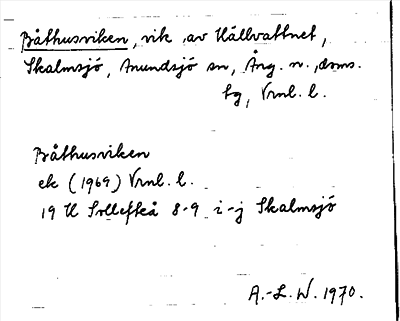 Båthusviken, vik av Hällvattnet,
Skalmsjö, Anundsjö sn, Ång. n., doms.
tg, Vrnl. l.
Båthusviken
ek (1969) Vrnl. l.
19 H Sollefteå 8-9 i-j Skalmsjö
A.-L. W. 1970.